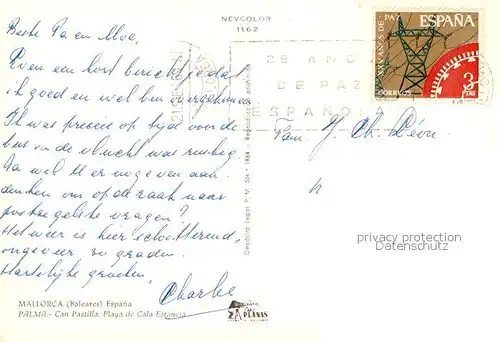 NEVCOLOR
1162
Beste Pa en Moe,
Even een kort bericht je dat
ik goed en wel ben overgekomen
Ik was precies op tijd voor de
bus en de vlucht was rustig.
Pa wil er nog even aan
denken om op de zaak naar
postzegels te vragen?
Het weer is hier schitterend,
ongeveer 20 graden.
Hartelijke groeten,
Charles
MALLORCA (Baleares) España
PALMA.- Can Pastilla. Playa de Cala Estancia
Depósito Legal P. M. 1964
25 AÑOS
DE PAZ
ESPAÑOLA
XXV AÑOS DE PAZ
ESPAÑA
CORREOS
3
PTAS
Fam. J. Ch.
PLANAS
privacy protection
www.ansichtskarten-center.de